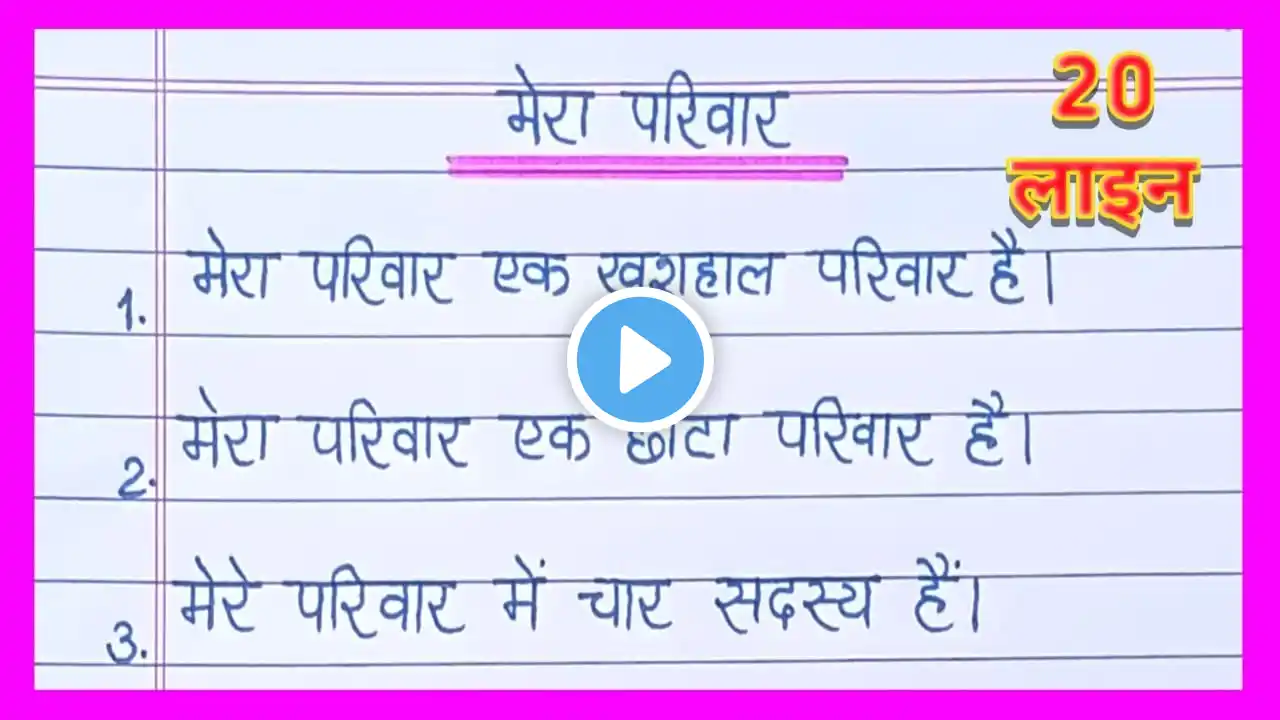 मेरा परिवार
20
लाइन
1. मेरा परिवार एक खुशहाल परिवार है।
2. मेरा परिवार एक छोटा परिवार है।
3. मेरे परिवार में चार सदस्य हैं।